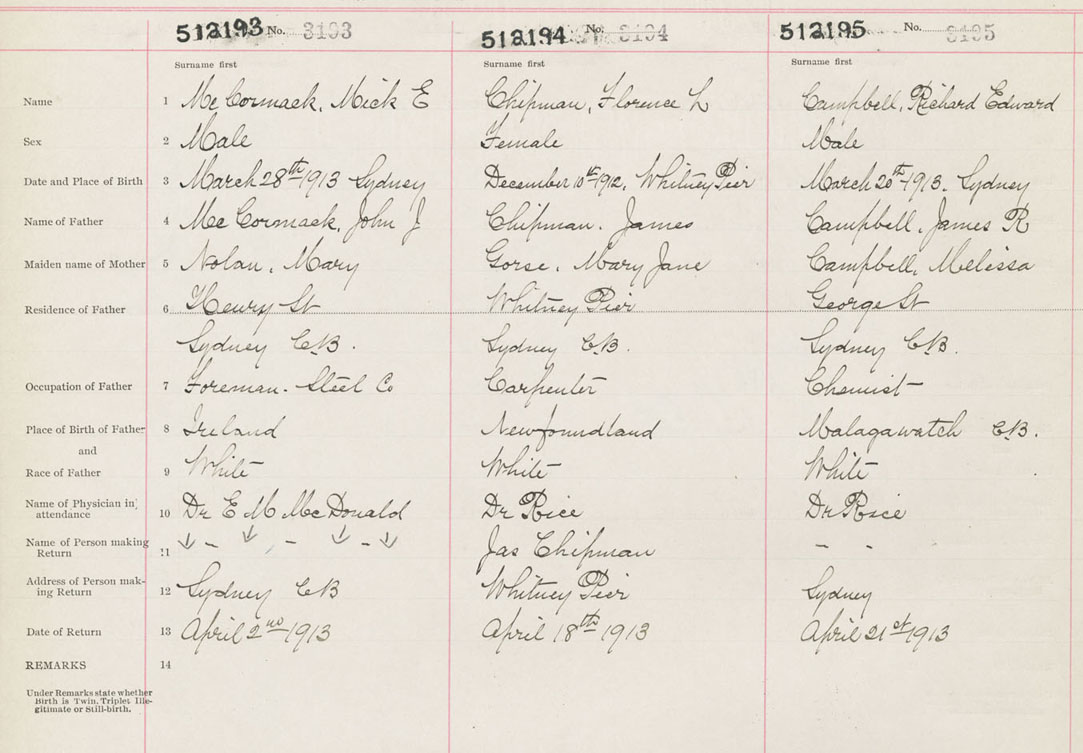 512193 No. 3193 512194 No. 3194 512195 No. 3195
Surname first Surname first Surname first
Name 1 McCormack, Mick E Chipman, Florence L Campbell, Richard Edward
Sex 2 Male Female Male
Date and Place of Birth 3 March 28th 1913 Sydney December 10th 1912, Whitney Pier March 20th 1913. Sydney
Name of Father 4 McCormack, John J Chipman. James Campbell, James R
Maiden name of Mother 5 Nolan, Mary Gorse, Mary Jane Campbell, Melissa
Residence of Father 6 Henry St Whitney Pier George St
Sydney C.B. Sydney C.B. Sydney C.B.
Occupation of Father 7 Foreman. Steel Co Carpenter Chemist
Place of Birth of Father 8 Ireland Newfoundland Malagawatch C.B.
and
Race of Father 9 White White White
Name of Physician in
attendance 10 Dr E M McDonald Dr Rice Dr Rice
Name of Person making
Return 11 Jas Chipman - -
Address of Person mak-
ing Return 12 Sydney CB Whitney Pier Sydney
Date of Return 13 April 2nd 1913 April 18th 1913 April 21st 1913
REMARKS 14
Under Remarks state whether
Birth is Twin, Triplet, Ille-
gitimate or Still-birth.